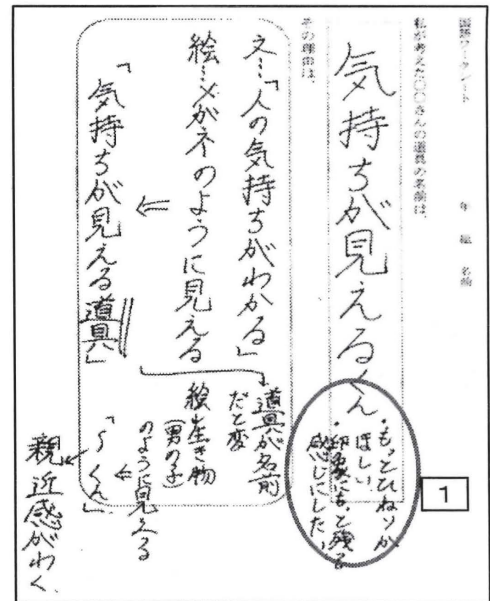 国語ワークシート　年　組　名前
私が考えた〇〇さんの道具の名前は、
気持ちが見えるくん
・もっとひねりが
ほしい。
・印象にもっと残る
感じにした。
1
その理由は、
文…「人の気持ちがわかる」
絵…メガネのように見える
⇐
「気持ちが見える道具」
道具が名前
だと変
絵→生き物
(男の子)
のように見える
←
「～くん」
親近感がわく、